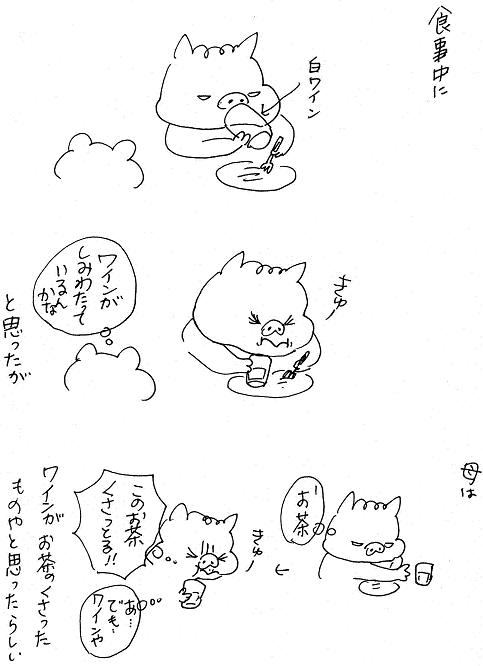 食事中に
白ワイン
きゅー
ワインが
しみわたって
いるん
かな
と思ったが
母は
お茶
きゅー
このお茶
くさっとる!!
あ…
でも…
ワインや
ワインが お茶のくさった
ものやと思ったらしい